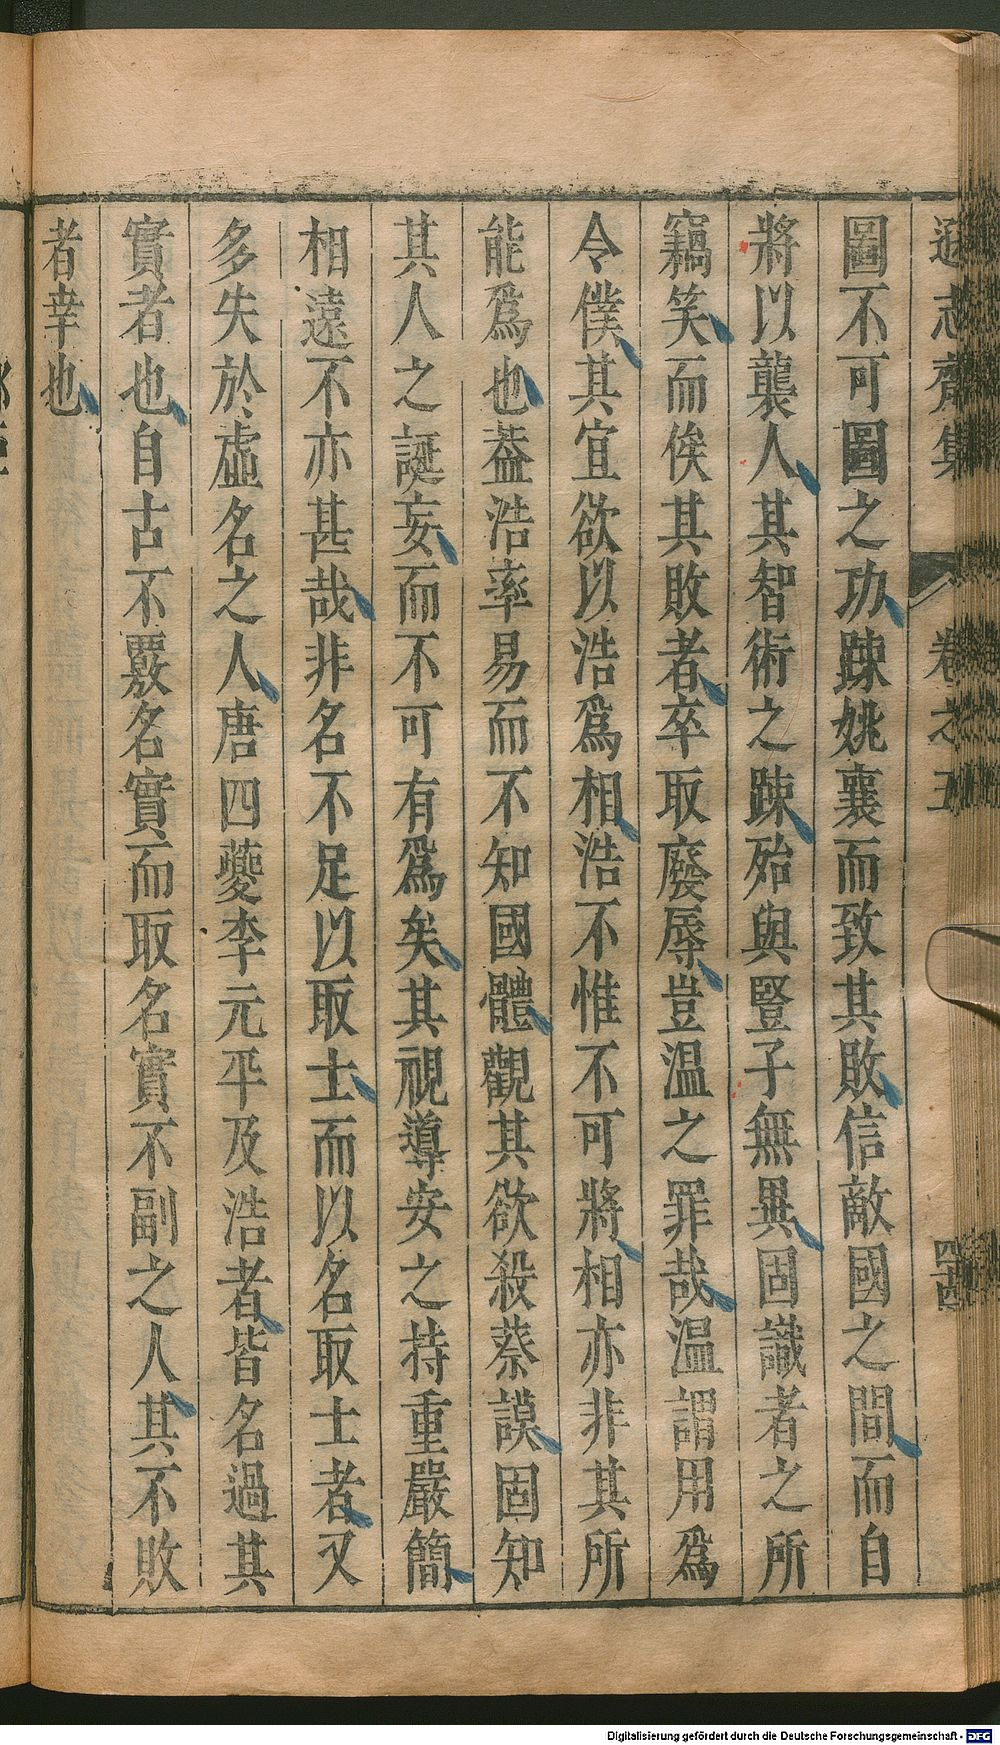 遜志齋集 卷之五 四
圖不可圖之功踈姚襄而致其敗信敵國之間而自
將以襲人其智術之踈殆與豎子無異固識者之所
竊笑而俟其敗者卒取廢辱豈溫之罪哉溫謂用爲
令僕其宜欲以浩爲相浩不惟不可將相亦非其所
能爲也葢浩率易而不知國體觀其欲殺蔡謨固知
其人之誕妄而不可有爲矣其視導安之持重嚴簡
相遠不亦甚哉非名不足以取士而以名取士者又
多失於虛名之人唐四夔李元平及浩者皆名過其
實者也自古不覈名實而取名實不副之人其不敗
者幸也
Digitalisierung gefördert durch die Deutsche Forschungsgemeinschaft - DFG